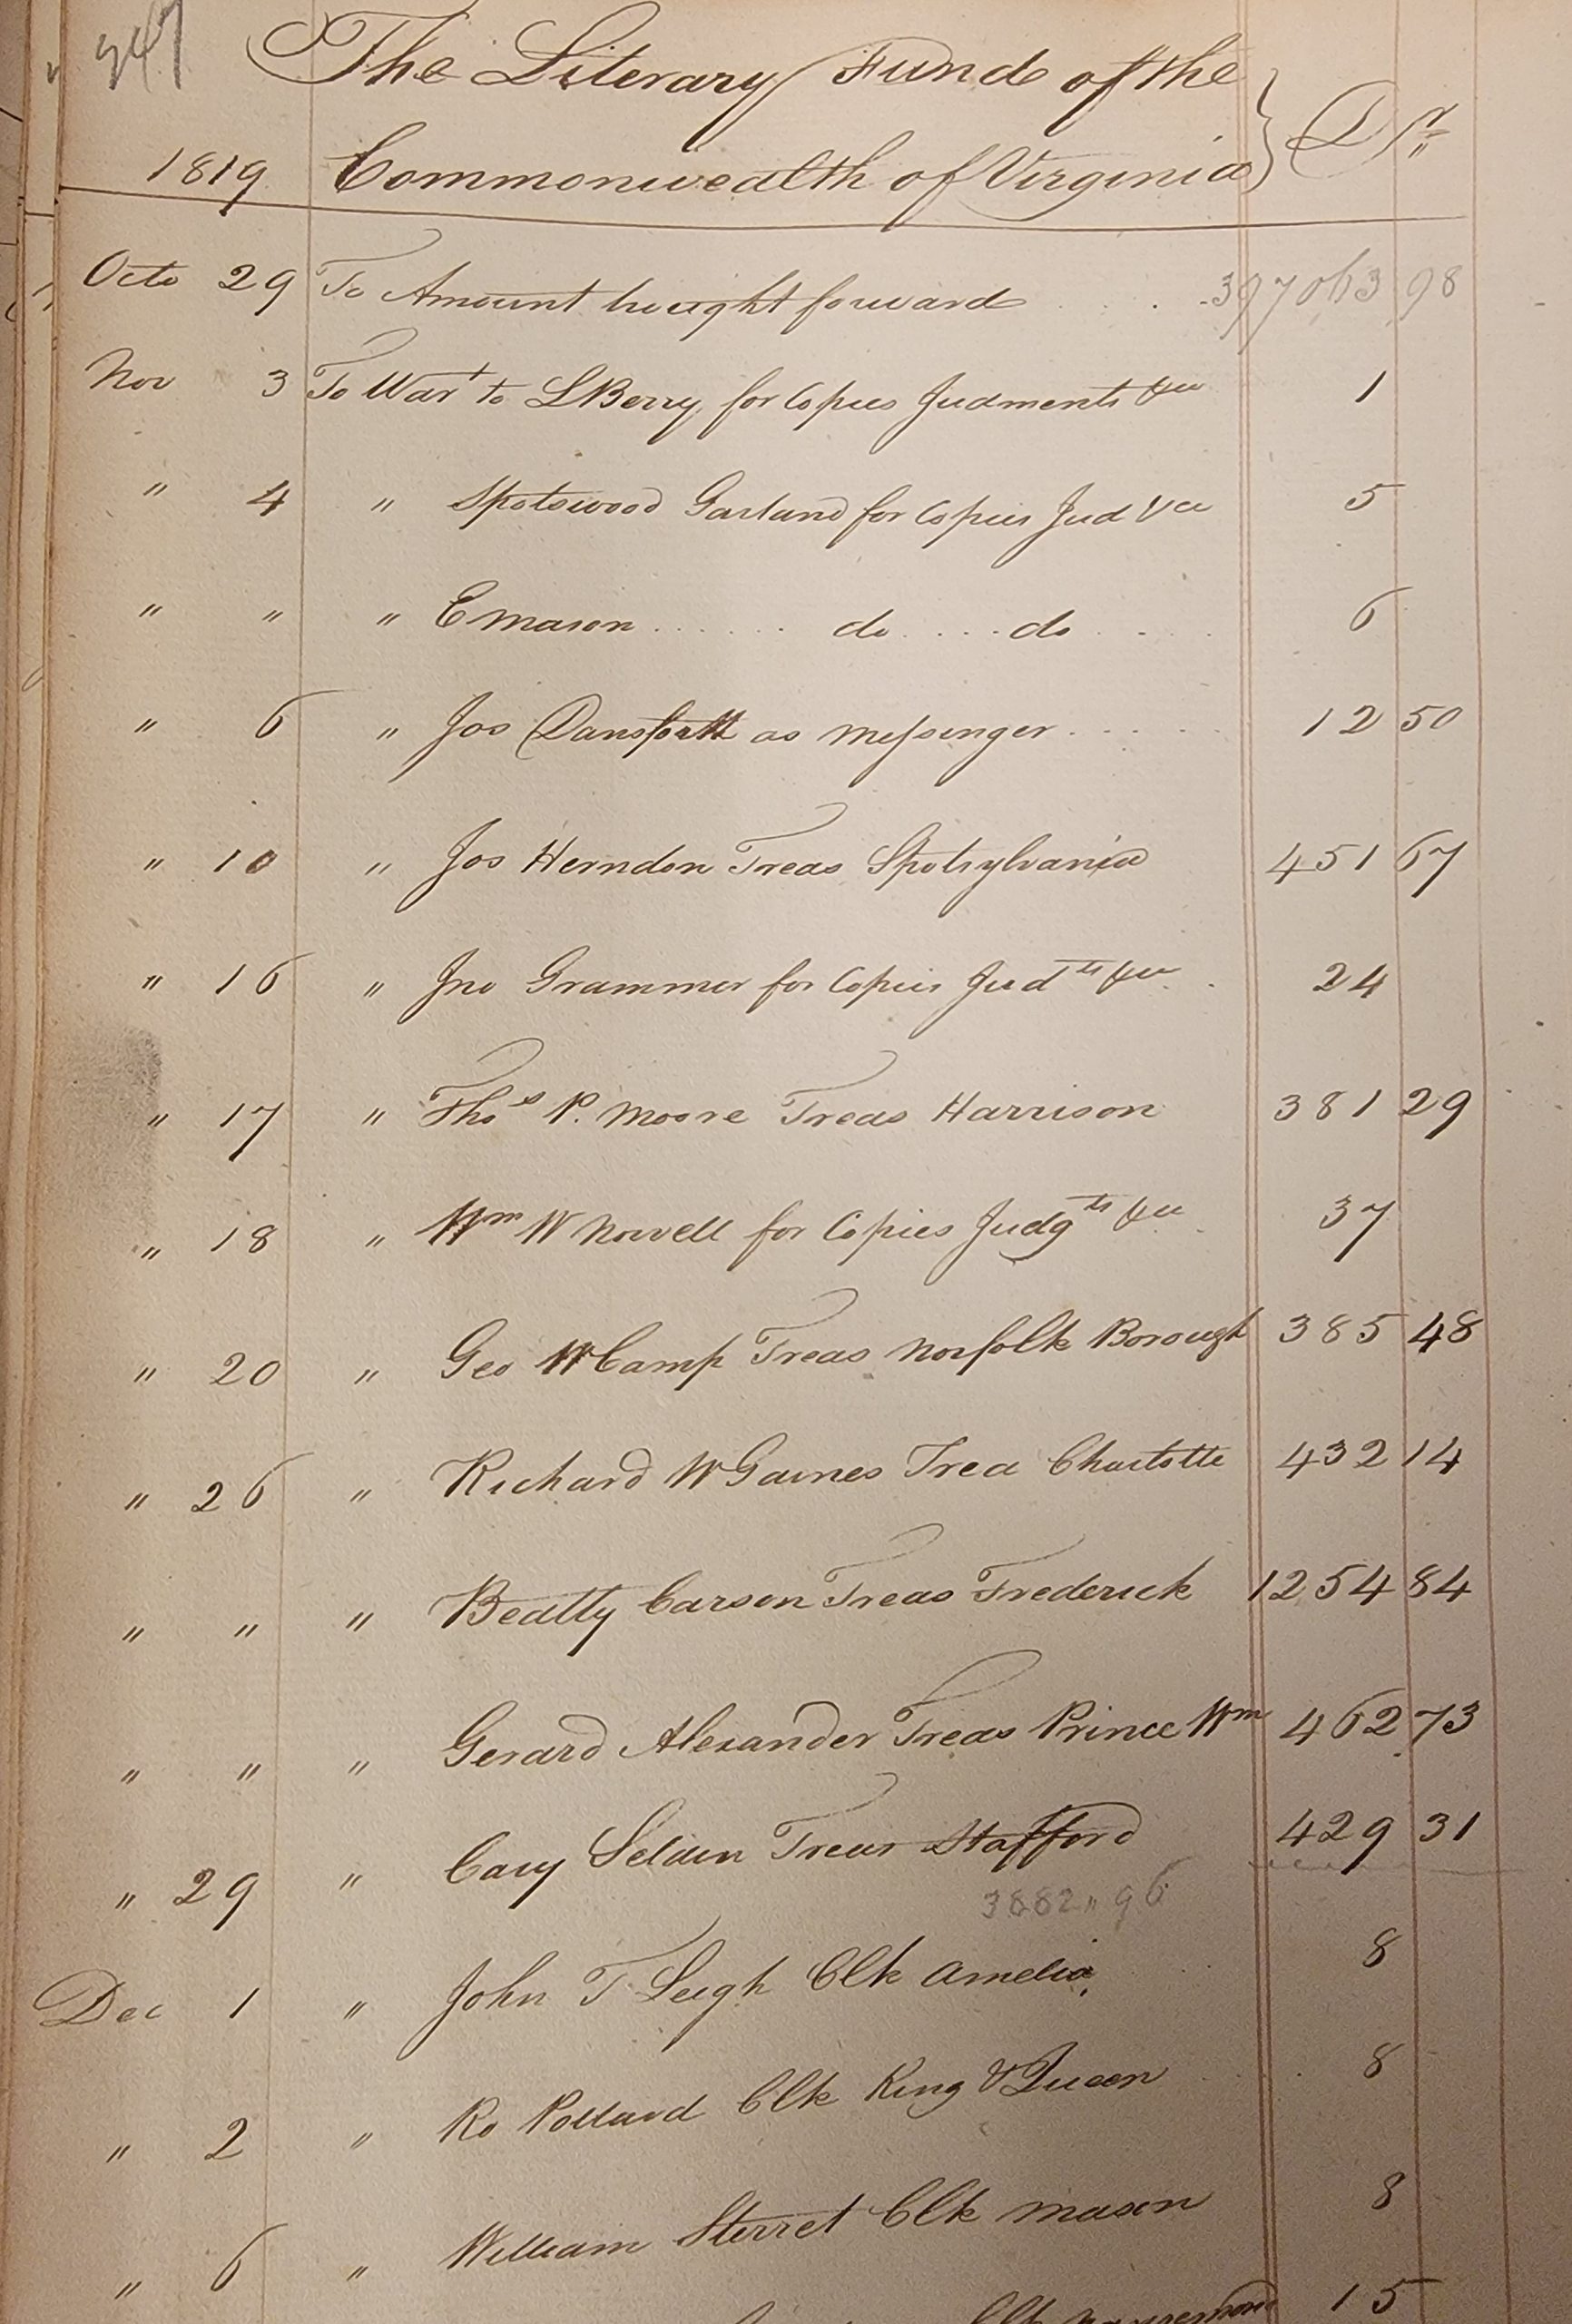 347
The Literary Fund of the
1819 Commonwealth of Virginia } Dr
Octo 29 To Amount brought forward . . . . 397063 98
Nov 3 To Wart to L Berry for Copies Judments &c 1
" 4 " Spotswood Garland for Copies Jud &c 5
" " " E Mason . . . . . . do . . . . do . . . . 6
" 6 " Jos Danforth as Messenger . . . . . 12 50
" 10 " Jos Herndon Treas Spotsylvania 451 67
" 16 " Jno Grammer for Copies Judts &c . 24
" 17 " Thos P. Moore Treas Harrison 381 29
" 18 " Wm W Norvell for Copies Judgts &c 37
" 20 " Geo W Camp Treas Norfolk Borough 385 48
" 26 " Richard W Gaines Trea Charlotte 432 14
" " " Beatty Carson Treas Frederick 1254 84
" " " Gerard Alexander Treas Prince Wm 462 73
" 29 " Cary Selden Treas Stafford 429 31
3882 " 96
Dec 1 " John T Leigh Clk Amelia 8
" 2 " Ro Pollard Clk King & Queen 8
" 6 " William Sterret Clk Mason 8
Clk Nansemond 15